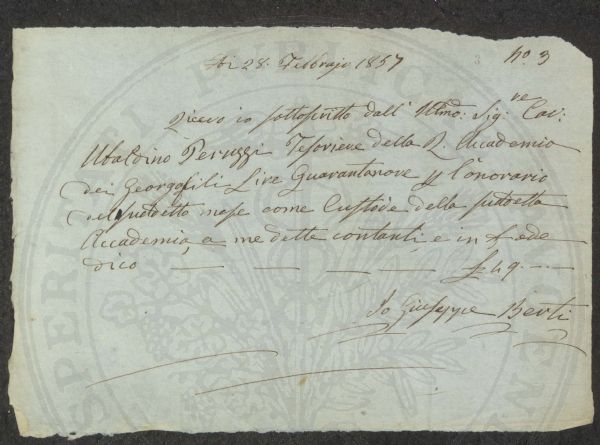 Adi 28. Febbrajo 1857
3
No. 3
Ricevo io sottoscritto dall' Illmo. Sig.re Cav:
Ubaldino Peruzzi Tesoriere della R. Accademia
dei Georgofili Lire Quarantanove p l'onorario
del suddetto mese come Custode della suddetta
Accademia, a me dette contanti, e in fede
dico — — — — £ 49. —
Io Giuseppe Berti